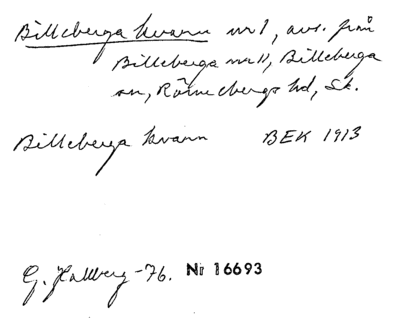 Billeberga kvarn nr 1, avs. från
Billeberga nr 11, Billeberga
sn, Rönnebergs hd, Sk.
Billeberga kvarn BEK 1913
G. Hallberg -76. Nr 16693